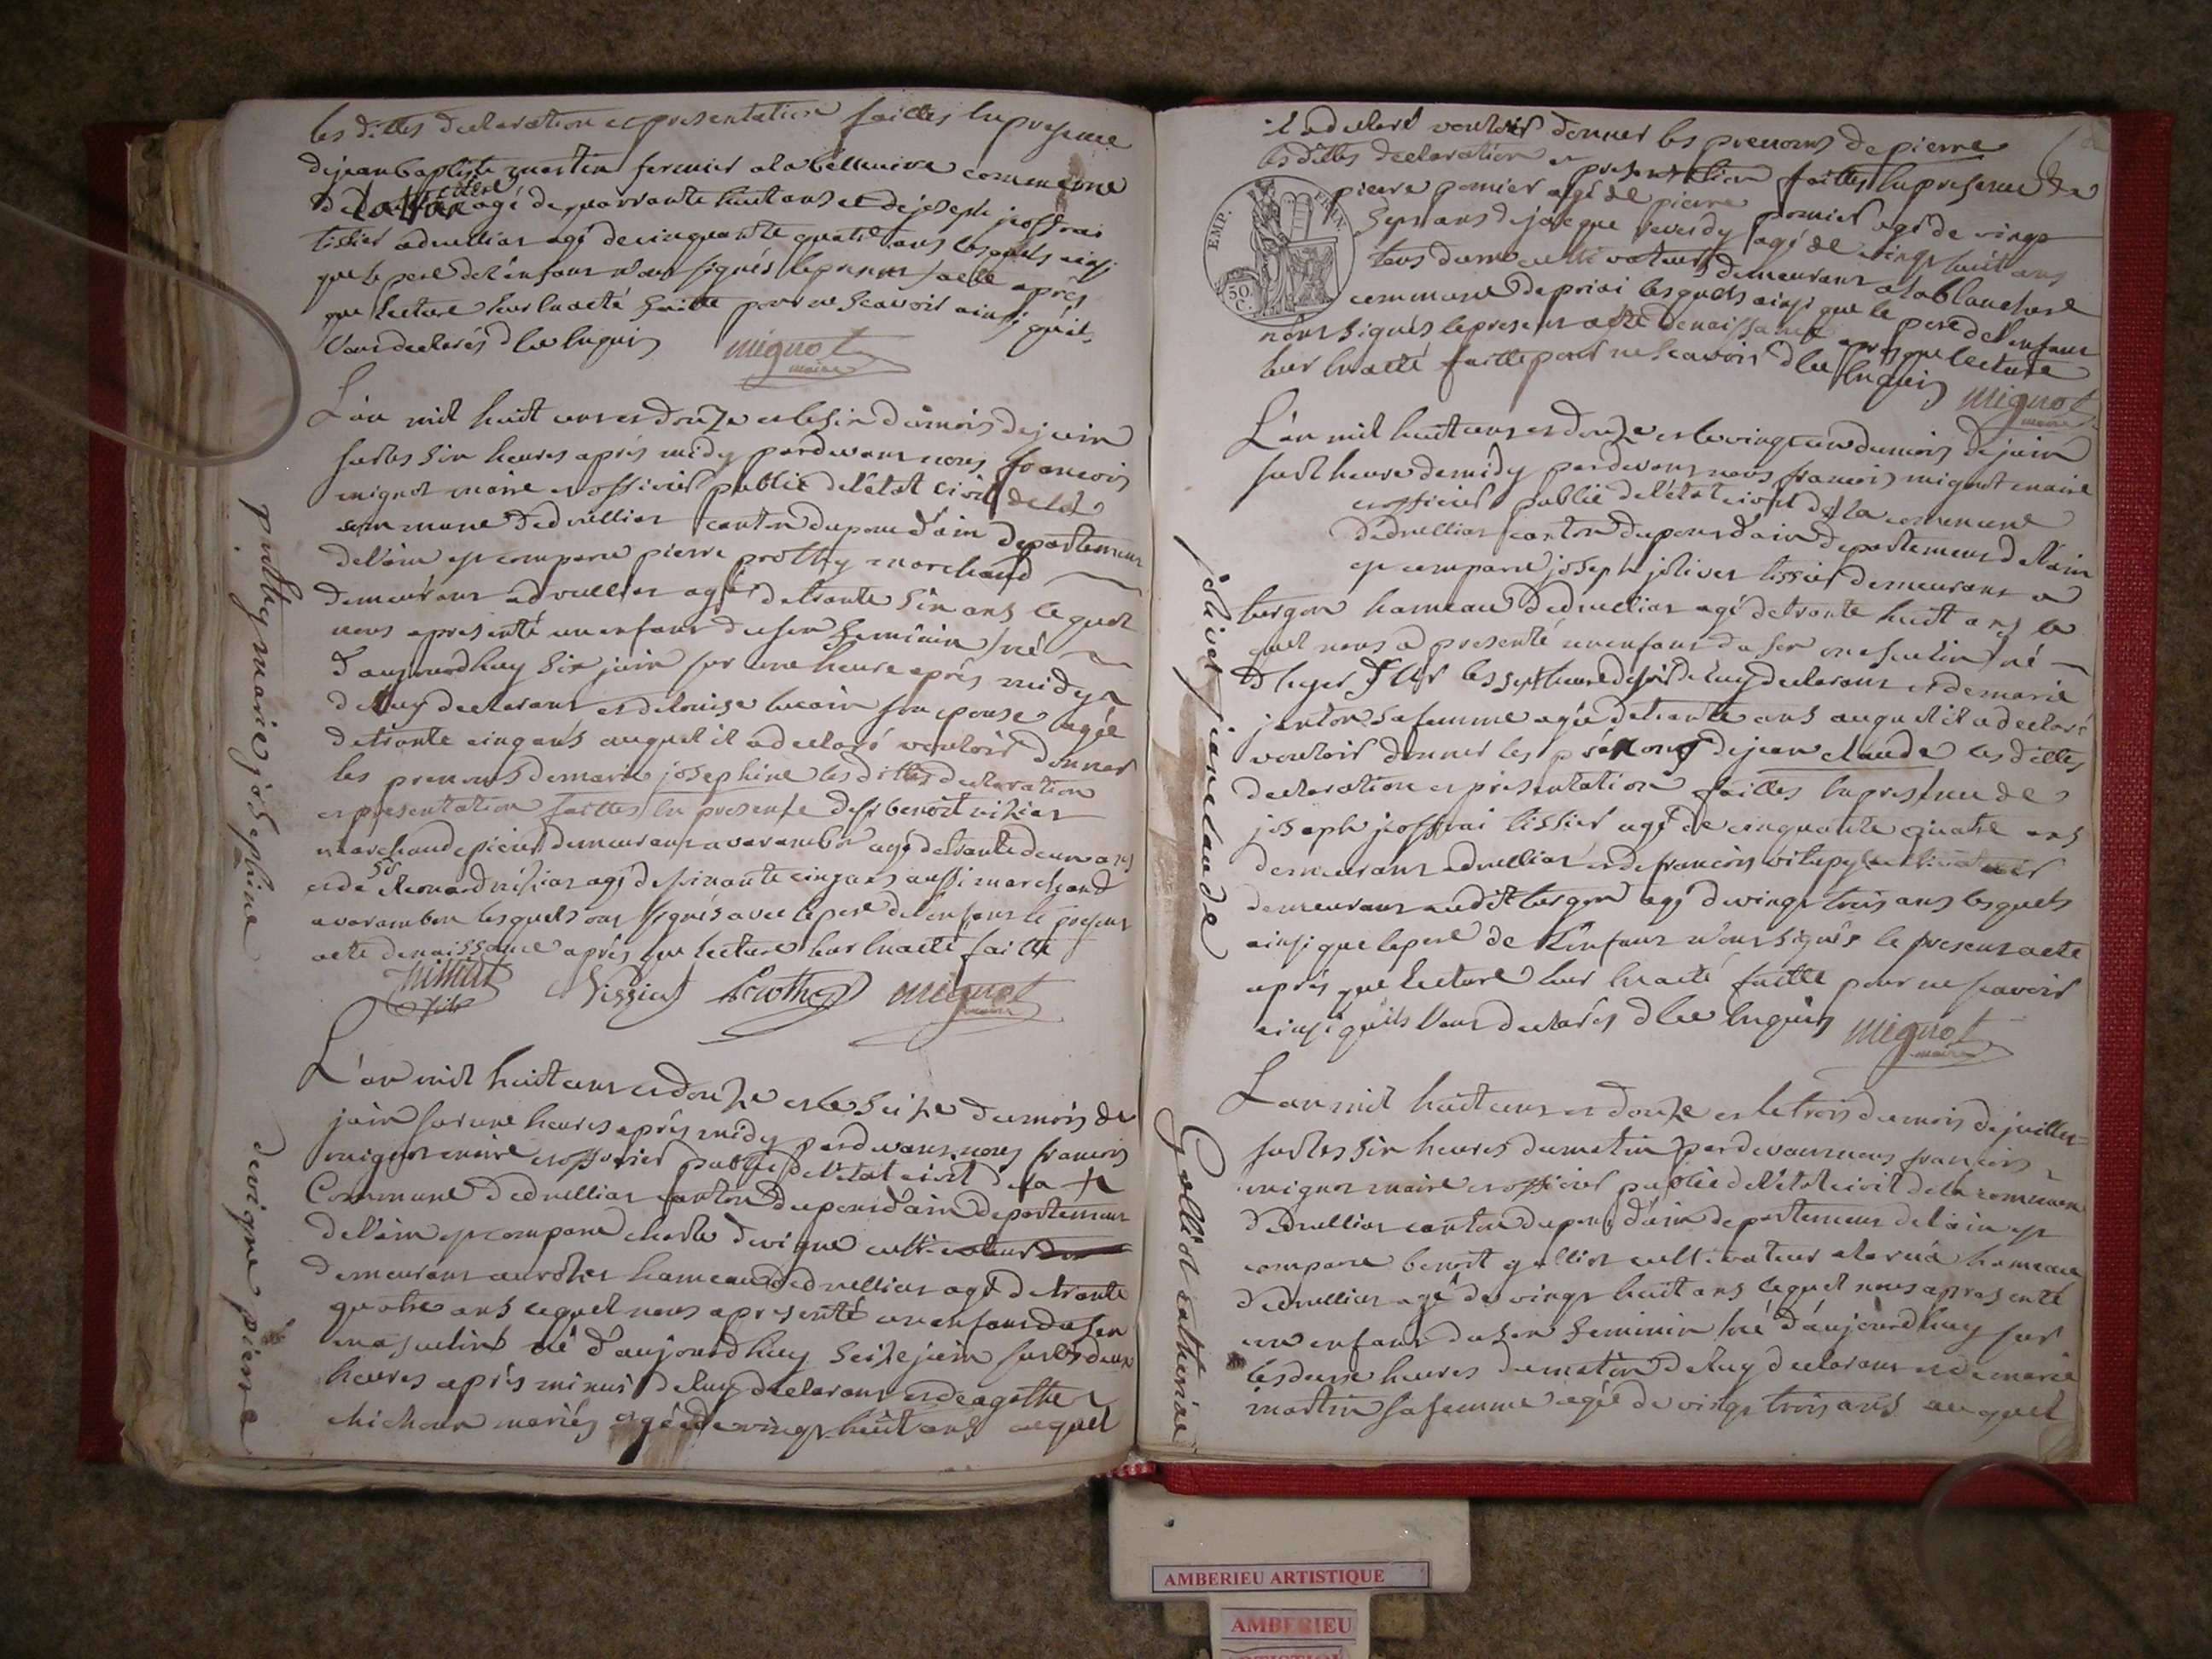 les dittes declaration et presentation faittes en presence
de jean baptiste martin fermier a la bellenive commune
de agé de quarrante huit ans et de joseph jeoffrai
tissier a druillias agé de cinquante quatre ans lesquels ainsi
que le pere de l'enfant n'ont signés le present acte aprés
que lecture leur en a eté faitte pour ne scavoir ainsi qu'il
l'ont declarés de ce enquis mignot
maire
L'an mil huit cent et douze et le six du mois de juin
sur les six heures aprés midy pardevant nous francois
mignot maire et officier public de l'état civil de la
commune de druillias canton du pont d'ain departement
de l'ain est comparu pierre prothy marchand
demeurant a druillias agé de trante six ans lequel
nous a presenté un enfant du sex feminin né
d'aujourdhuy six juin sur une heure aprés midy
de luy declarant et de louise son epouse agée
de trante cinq ans auquel il a declaré vouloir donner
les prenoms de marie josephine les dittes declaration
et presentation faittes en presence de sr benoit
marchand epicier demeurant a varambon agé de trante deux ans
et de sr leonard agé de soixante cinq ans aussi marchand
a varambon lesquels ont signés avec le pere de l'enfant le present
acte de naissance aprés que lecture leur en a eté faitte
fils Prothy mignot
maire
prothy marie josephine
L'an mil huit cent et douze et le seize du mois de
juin sur une heures aprés midy pardevant nous francois
mignot maire et officier public de l'etat civil de la
Commune de druillias canton du pont d'ain departement
de l'ain est comparu charle devigne cultivateur
demeurant hameau de druillias agé de trante
quatre ans lequel nous a presenté un enfant du sex
masculin né d'aujourdhuy seize juin sur les deux
heures aprés minuit de luy declarant et de agathe
mariés agée de vingt huit ans auquel
devigne pierre
il a declaré vouloir donner les prenoms de pierre
les dittes declaration et presentation faittes en presence de
pierre pomier agé de pierre pomier agé de vingt
sept ans de jacque reverdy agé de vingt huit ans
tous deux cultivateurs demeurant a la blanchere
commune de priai lesquels ainsi que le pere de l'enfant
n'ont signés le present acte de naissance aprés que lecture
leur en a eté faitte pour ne scavoir de ce enquis mignot
maire
EMP. FRAN.
50 C.
L'an mil huit cent et douze et le vingt un du mois de juin
sur l'heure de midy pardevant nous francois mignot maire
et officier public de l'état civil de la commune
de druillias canton du pont d'ain departement de l'ain
est comparu joseph jolivet tissier demeurant a
turgon hameau de druillias agé de trante huit ans le
quel nous a presenté un enfant du sex masculin né
d'hyer sur les sept heure de soir de luy declarant et de marie
janton sa femme agée de trante ans auquel il a declaré
vouloir donner les prénoms de jean claude les dittes
declaration et presentation faittes en presence de
joseph jeoffrai tissier agé de cinquante quatre ans
demeurant a druillias et de francois cultivateur
demeurant audit turgon agé de vingt trois ans lesquels
ainsi que le pere de l'enfant n'ont signés le present acte
aprés que lecture leur en a eté faitte pour ne scavoir
ainsi qu'ils l'ont declarés de ce enquis mignot
maire
jolivet jean claude
L'an mil huit cent et douze et le trois du mois de juillet
sur les six heures du matin pardevant nous francois
mignot maire et officier public de l'état civil de la commune
de druillias canton du pont d'ain departement de l'ain est
comparu benoit gollion cultivateur hameau
de druillias agé de vingt huit ans lequel nous a presenté
un enfant du sex feminin né d'aujourdhuy sur
les deux heures du matin de luy declarant et de marie
martin sa femme agée de vingt trois ans auquel
Gollion catherine
AMBERIEU ARTISTIQUE
AMBERIEU
ARTISTIQUE